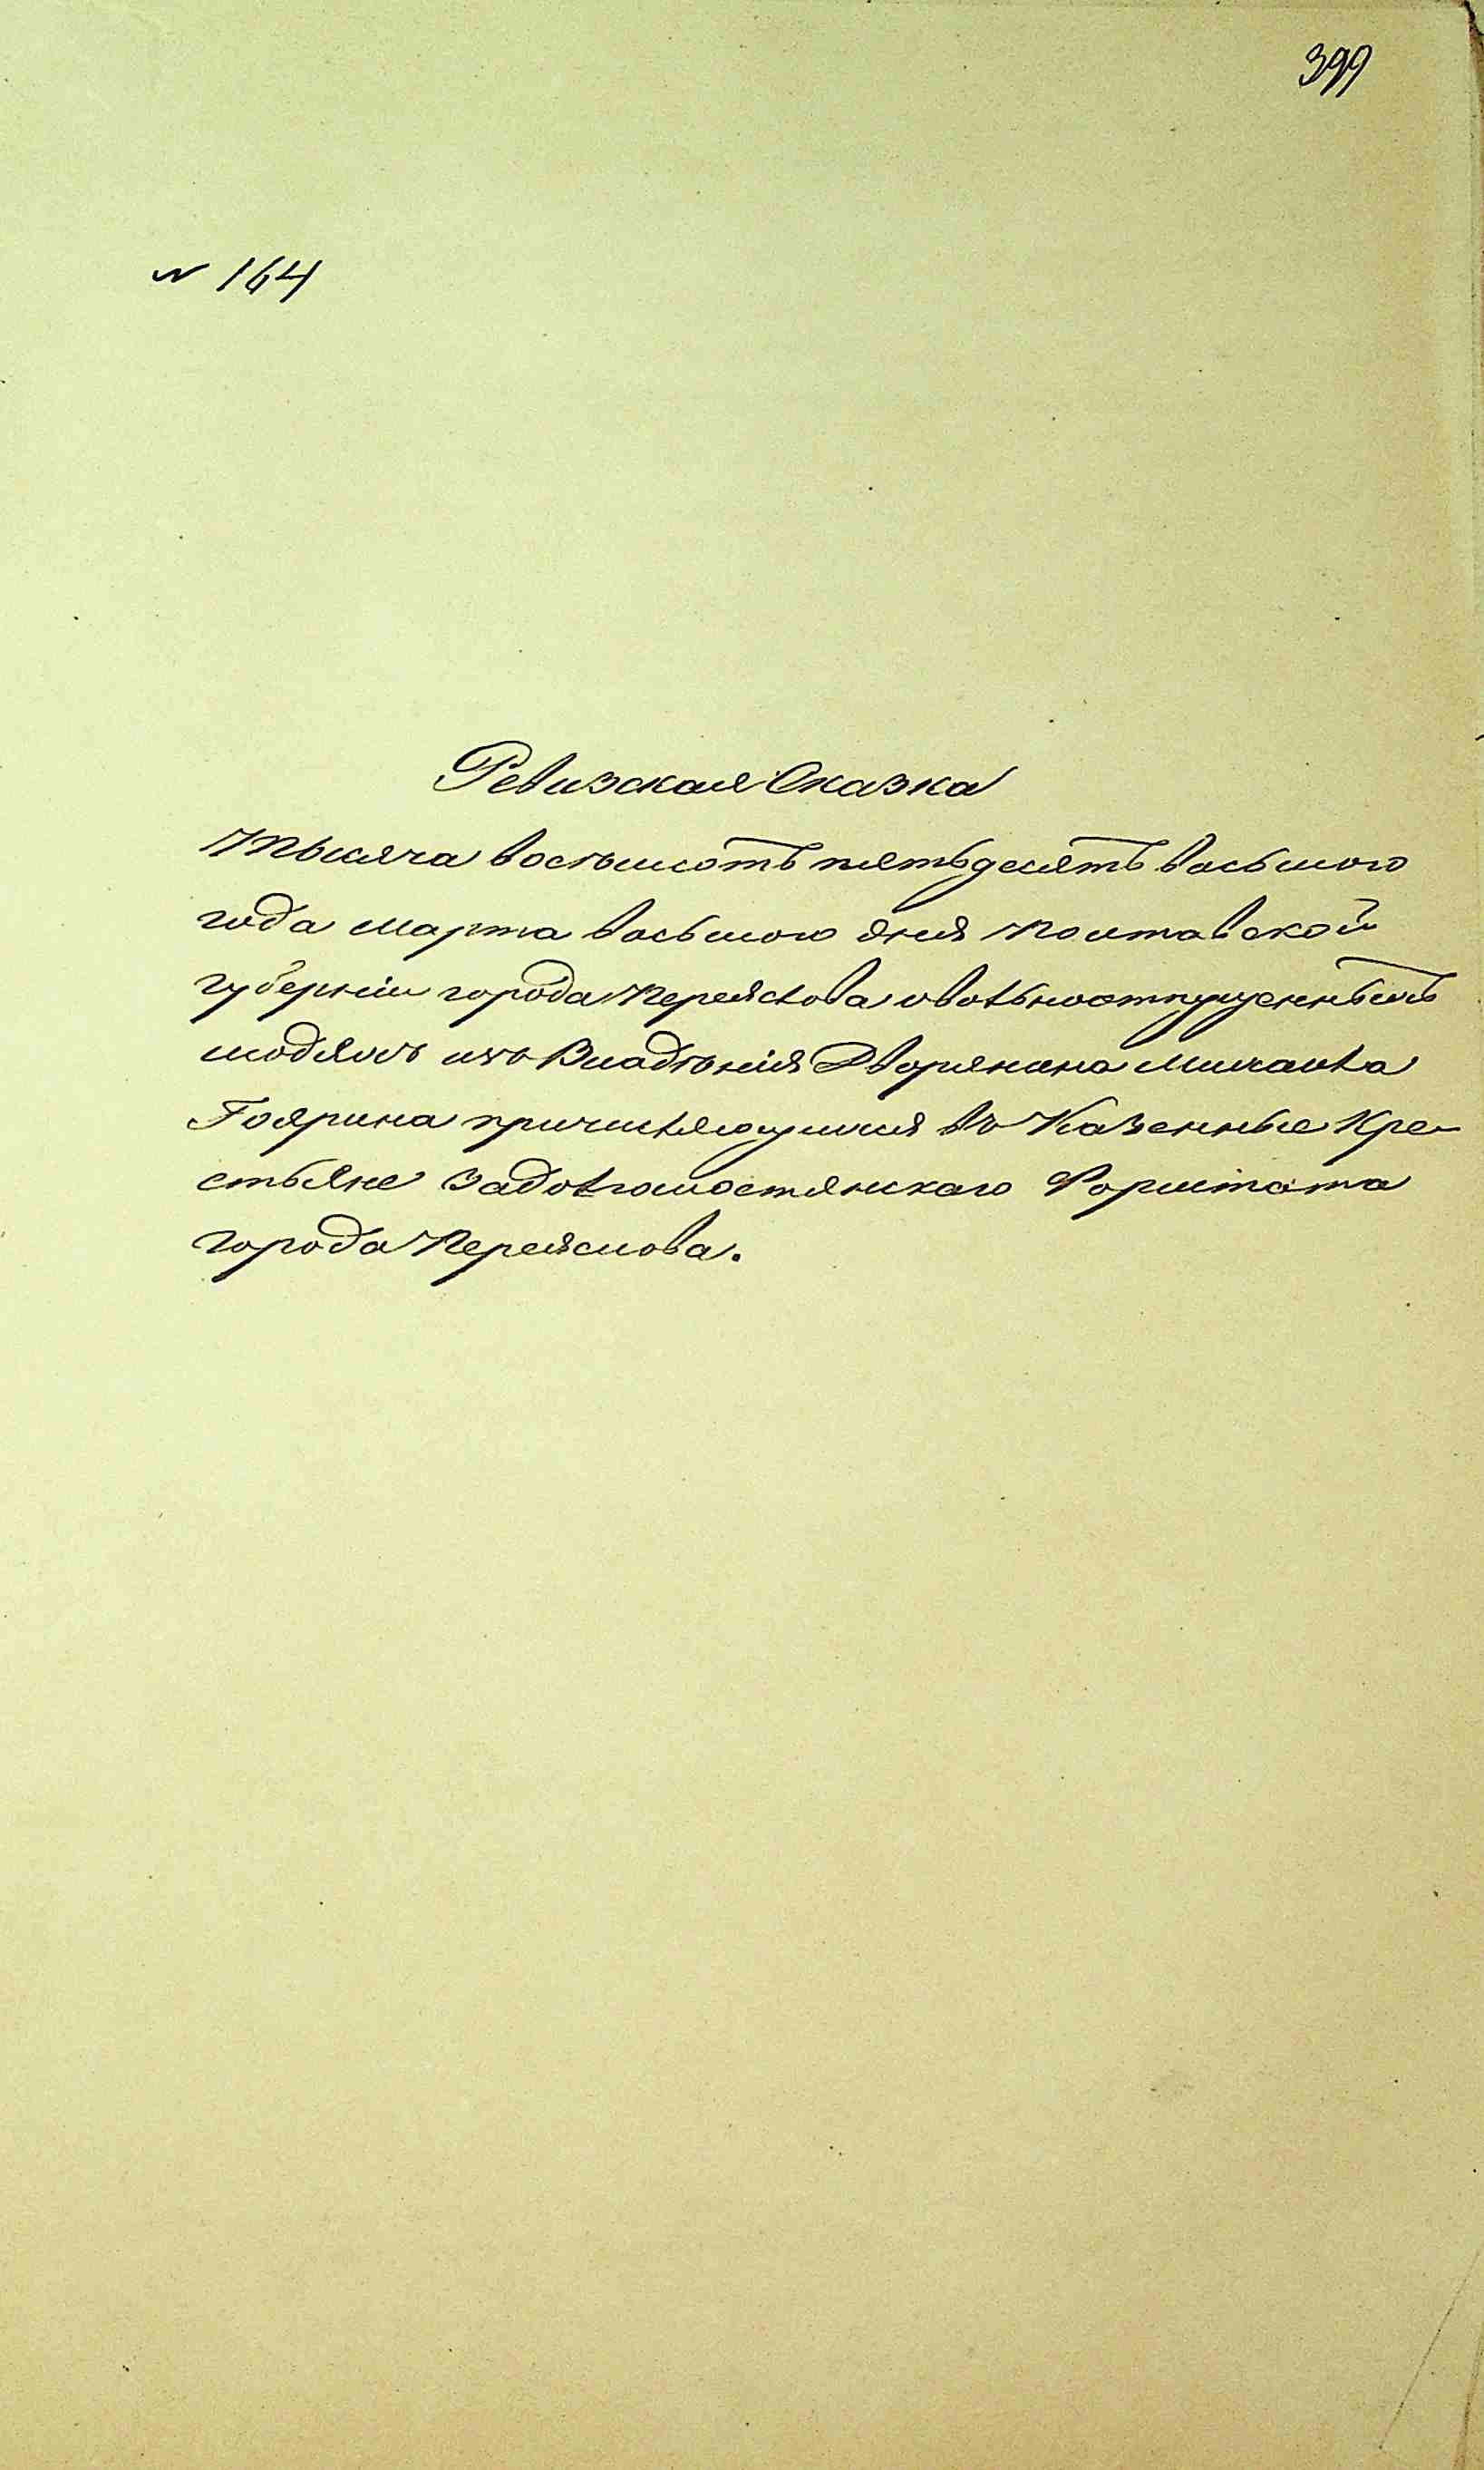 399
№ 164
Ревизская Сказка
Тысяча восемьсотъ пятьдесятъ восьмого
года марта восьмого дня Полтавской
губерніи города Переяслова овольноотпущенныхъ
людяхъ изъ Владѣнія Дворянина Михаила
Гоярина причисляющихся въ Казенные Кре-
стьяне Задовгомостянскаго Форштата
города Переяслова.